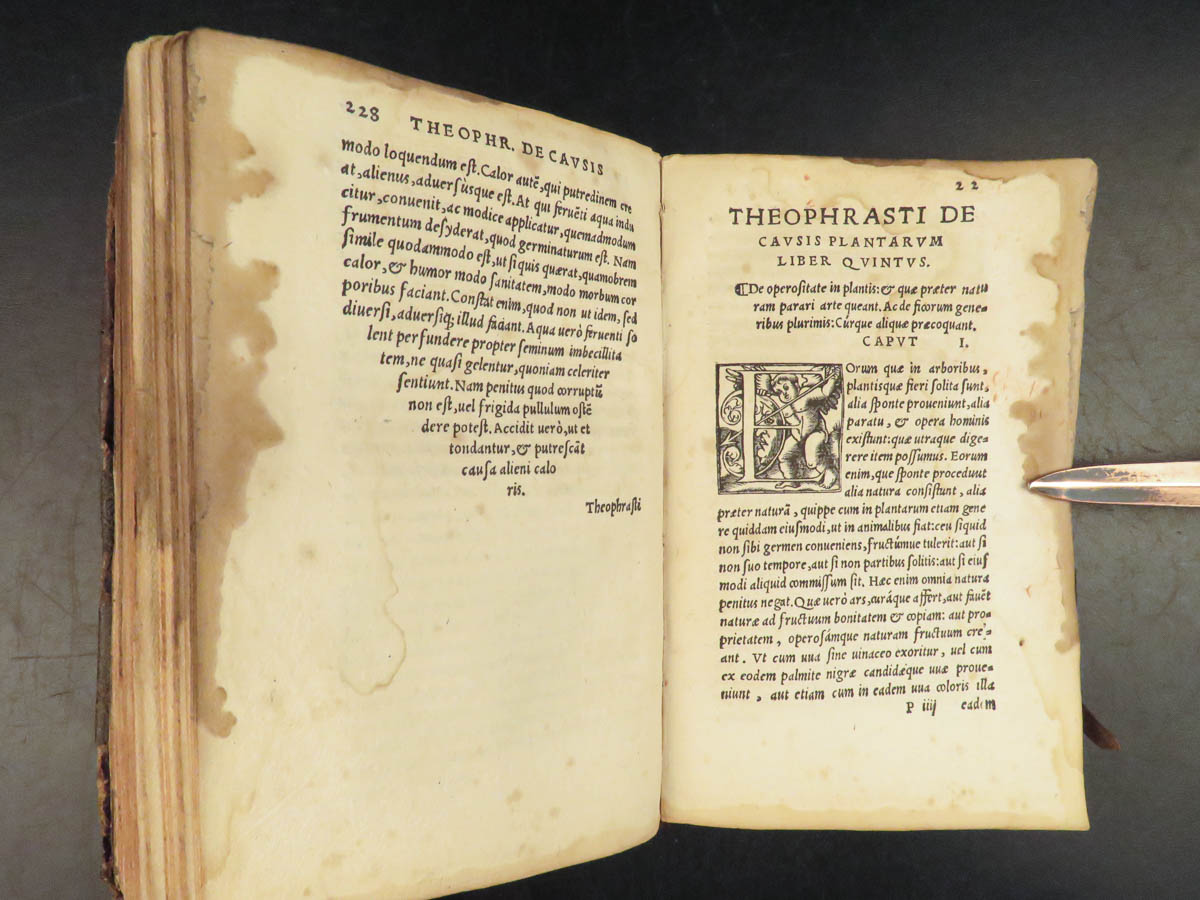 228 THEOPHR. DE CAVSIS
modo loquendum est. Calor autē, qui putredinem cre
at, alienus, aduersùsque est. At qui feruēti aqua indu
citur, conuenit, ac modice applicatur, quemadmodum
frumentum desyderat, quod germinaturum est. Nam
simile quodammodo est, ut si quis quærat, quamobrem
calor, & humor modo sanitatem, modo morbum cor
poribus faciant. Constat enim, quod non ut idem, sed
diuersi, aduersiq; illud faciant. Aqua uerò feruenti so
lent perfundere propter seminum imbecillita
tem, ne quasi gelentur, quoniam celeriter
sentiunt. Nam penitus quod corruptū
non est, uel frigida pullulum ostē
dere potest. Accidit uerò, ut et
tondantur, & putrescāt
causa alieni calo
ris.
Theophrasti
22
THEOPHRASTI DE
CAVSIS PLANTARVM
LIBER QVINTVS.
¶De operositate in plantis: & quæ præter natu
ram parari arte queant. Ac de ficorum gene-
ribus plurimis: Cúrque aliquæ præcoquant.
CAPVT I.
EOrum quæ in arboribus,
plantisque fieri solita sunt,
alia sponte proueniunt, alia
paratu, & opera hominis
existunt: quæ utraque dige-
rere item possumus. Eorum
enim, que sponte procedunt
alia natura consistunt, alia
præter naturā, quippe cum in plantarum etiam gene
re quiddam eiusmodi, ut in animalibus fiat: ceu siquid
non sibi germen conueniens, fructúmue tulerit: aut si
non suo tempore, aut si non partibus solitis: aut si eius
modi aliquid commissum sit. Hæc enim omnia natura
penitus negat. Quæ uerò ars, curáque affert, aut fauēt
naturæ ad fructuum bonitatem & copiam: aut pro-
prietatem, operosámque naturam fructuum cre-
ant. Vt cum uua sine uinaceo exoritur, uel cum
ex eodem palmite nigræ candidæque uuæ proue-
niunt, aut etiam cum in eadem uua coloris illa
P iiij eadem